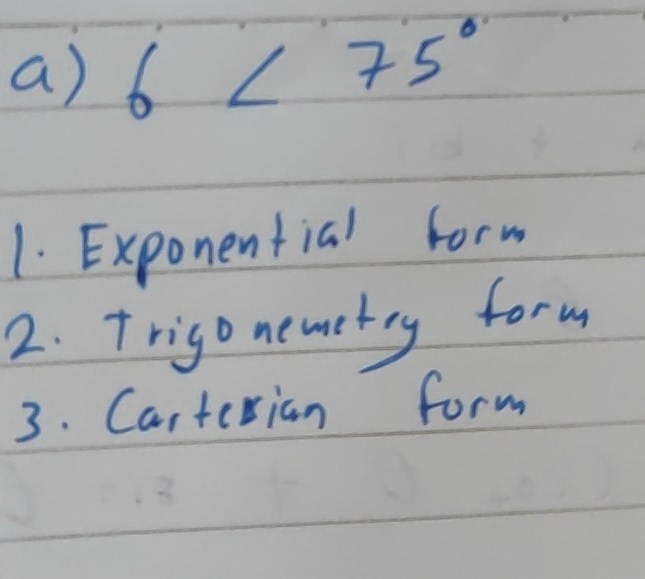 a) 6 ∠ 75°
1. Exponential form
2. Trigonemetry form
3. Cartesian form